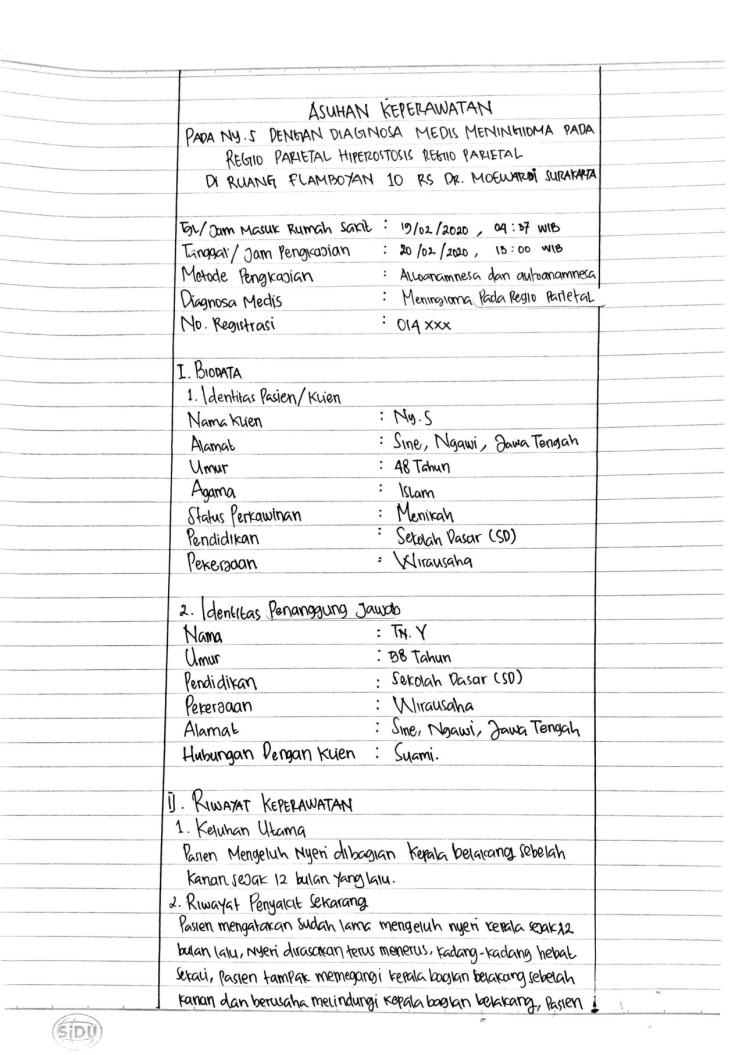 ASUHAN KEPERAWATAN
PADA NY.S DENGAN DIAGNOSA MEDIS MENINGIOMA PADA
REGIO PARIETAL HIPEROSTOSIS REGIO PARIETAL
DI RUANG FLAMBOYAN 10 RS DR. MOEWARDI SURAKARTA
Tgl/Jam Masuk Rumah Sakit : 19/02/2020, 09:37 WIB
Tanggal/Jam Pengkajian : 20/02/2020, 13:00 WIB
Metode Pengkajian : Alloanamnesa dan autoanamnesa
Diagnosa Medis : Meningioma Pada Regio Parietal
No. Registrasi : 014 xxx
I. BIODATA
1. Identitas Pasien/Klien
Nama Klien : Ny.S
Alamat : Sine, Ngawi, Jawa Tengah
Umur : 48 Tahun
Agama : Islam
Status Perkawinan : Menikah
Pendidikan : Sekolah Dasar (SD)
Pekerjaan : Wirausaha
2. Identitas Penanggung Jawab
Nama : TN. Y
Umur : 38 Tahun
Pendidikan : Sekolah Dasar (SD)
Pekerjaan : Wirausaha
Alamat : Sine, Ngawi, Jawa Tengah
Hubungan Dengan Klien : Suami.
II. RIWAYAT KEPERAWATAN
1. Keluhan Utama
Pasien Mengeluh Nyeri dibagian Kepala belakang sebelah
kanan sejak 12 bulan yang lalu.
2. Riwayat Penyakit Sekarang
Pasien mengatakan sudah lama mengeluh nyeri kepala sejak 12
bulan lalu, Nyeri dirasakan terus menerus, kadang-kadang hebat
sekali, Pasien tampak memegangi kepala bagian belakang sebelah
kanan dan berusaha melindungi kepala bagian belakang, Pasien
SiDU